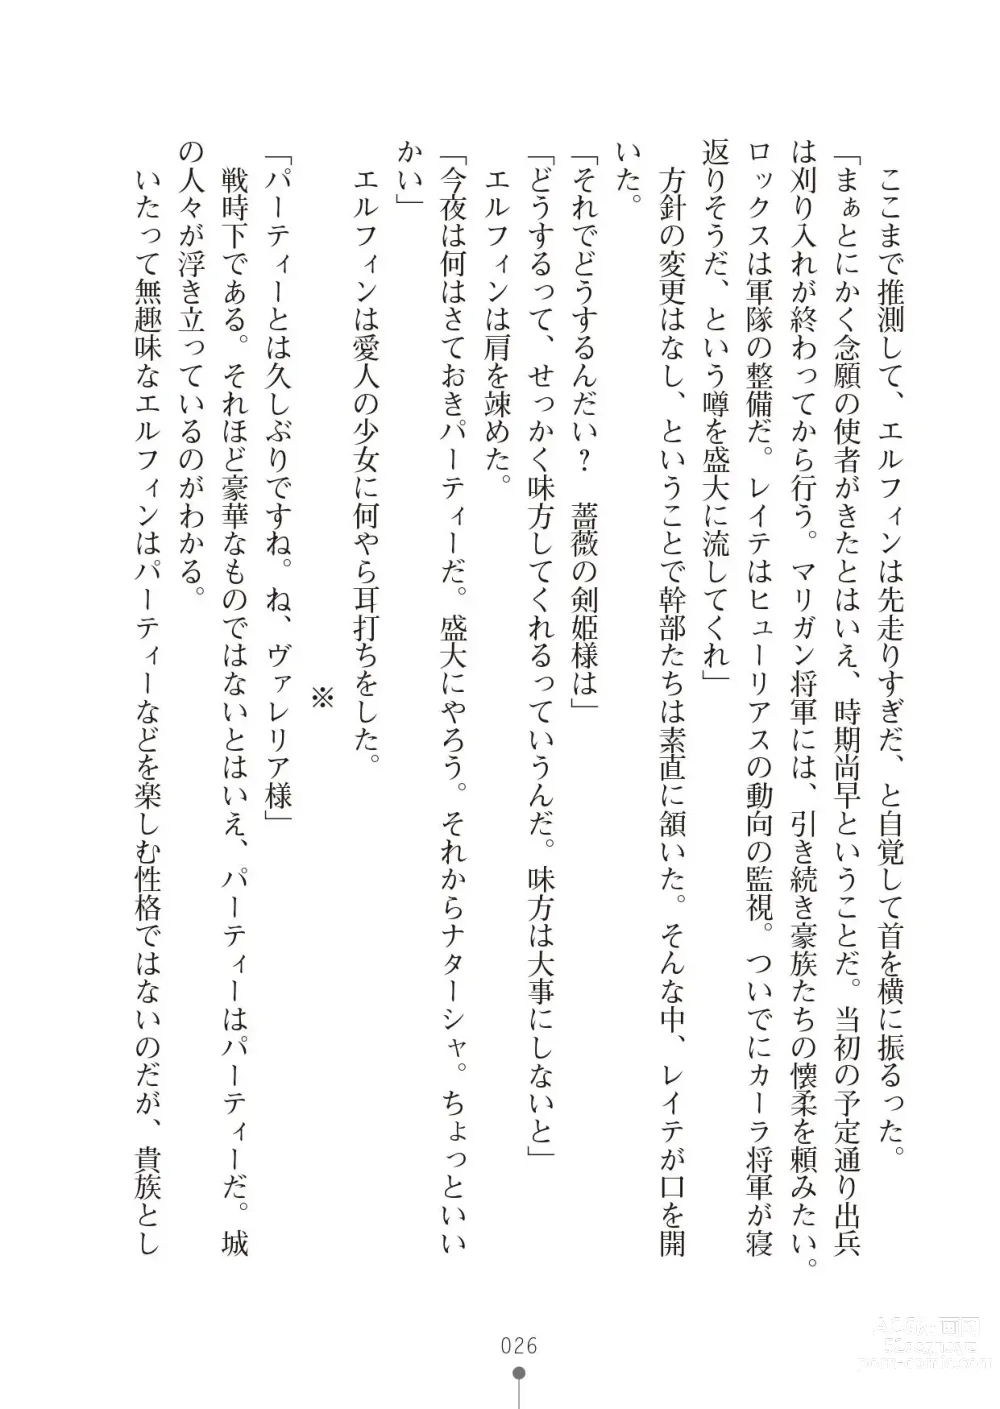 ここまで推測して、エルフィンは先走りすぎだ、と自覚して首を横に振るった。
「まぁとにかく念願の使者がきたとはいえ、時期尚早ということだ。当初の予定通り出兵
は刈り入れが終わってから行う。マリガン将軍には、引き続き豪族たちの懐柔を頼みたい。
ロックスは軍隊の整備だ。レイテはヒューリアスの動向の監視。ついでにカーラ将軍が寝
返りそうだ、という噂を盛大に流してくれ」
　方針の変更はなし、ということで幹部たちは素直に頷いた。そんな中、レイテが口を開
いた。
「それでどうするんだい？　薔薇の剣姫様は」
「どうするって、せっかく味方してくれるっていうんだ。味方は大事にしないと」
　エルフィンは肩を竦めた。
「今夜は何はさておきパーティーだ。盛大にやろう。それからナターシャ。ちょっといい
かい」
　エルフィンは愛人の少女に何やら耳打ちをした。
※
「パーティーとは久しぶりですね。ね、ヴァレリア様」
　戦時下である。それほど豪華なものではないとはいえ、パーティーはパーティーだ。城
の人々が浮き立っているのがわかる。
　いたって無趣味なエルフィンはパーティーなどを楽しむ性格ではないのだが、貴族とし
026